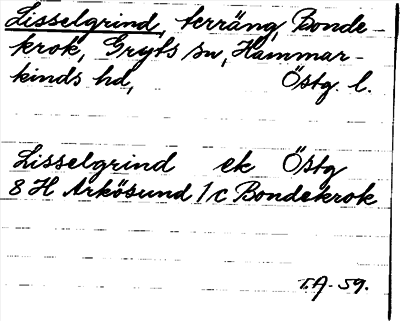 Lisselgrind, terräng, Bonde-
krok, Gryts sn, Hammar-
kinds hd, Östg. l.
Lisselgrind ek Östg
8 H Arkösund 1 c Bondekrok
T.A. 59.